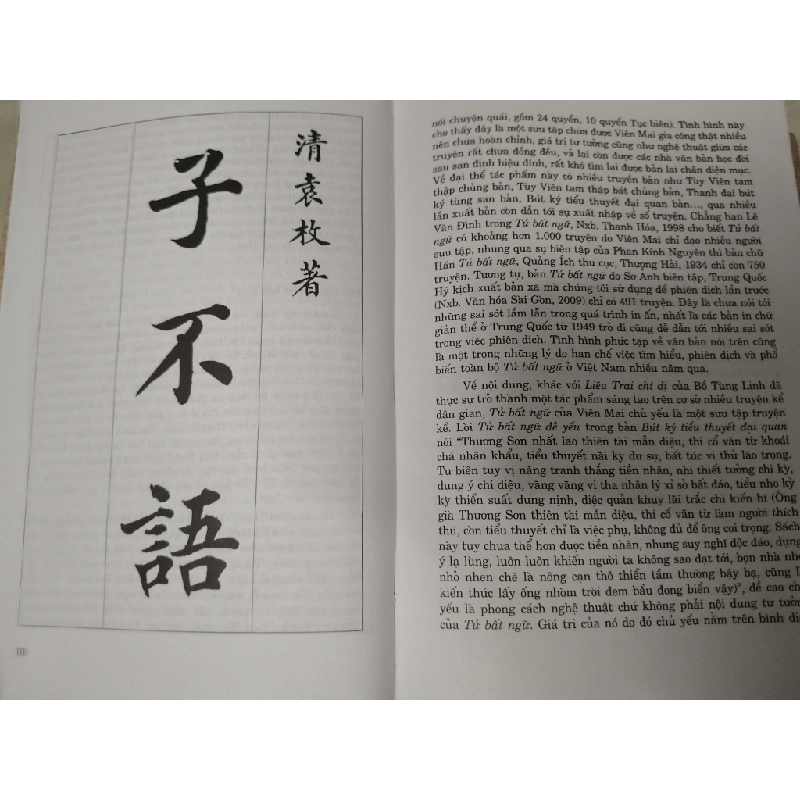 清袁枚著
子不語
nói chuyện quái, gồm 24 quyển, 10 quyển Tục biên). Tình hình này
cho thấy đây là một sưu tập chưa được Viên Mai gia công thật nhiều
nên chưa hoàn chỉnh, giá trị tư tưởng cũng như nghệ thuật giữa các
truyện rất chưa đồng đều, vả lại còn được các nhà văn bản học đời
sau san định hiệu đính, rất khó tìm lại được bản lai chân diện mục.
Về đại thể tác phẩm này có nhiều truyền bản như Tùy Viên tam
thập chủng bản, Tùy Viên tam thập bát chủng bản, Thanh đại bút
ký tùng san bản, Bút ký tiểu thuyết đại quan bản..., qua nhiều
lần xuất bản còn dẫn tới sự xuất nhập về số truyện. Chẳng hạn Lê
Văn Đình trong Tử bất ngữ, Nxb. Thanh Hóa, 1998 cho biết Tử bất
ngữ có khoảng hơn 1.000 truyện do Viên Mai chỉ đạo nhiều người
sưu tập, nhưng qua sự hiệu tập của Phan Kính Nguyên thì bản chữ
Hán Tử bất ngữ, Quảng Ích thư cục, Thượng Hải, 1934 chỉ còn 750
truyện. Tương tự, bản Tử bất ngữ do Sơ Anh biên tập, Trung Quốc
Hý kịch xuất bản xã mà chúng tôi sử dụng để phiên dịch lần trước
(Nxb. Văn hóa Sài Gòn, 2009) chỉ có 491 truyện. Đây là chưa nói tới
những sai sót lầm lẫn trong quá trình in ấn, nhất là các bản in chữ
giản thể ở Trung Quốc từ 1949 trở đi cũng dễ dẫn tới nhiều sai sót
trong việc phiên dịch. Tình hình phức tạp về văn bản nói trên cũng
là một trong những lý do hạn chế việc tìm hiểu, phiên dịch và phổ
biến toàn bộ Tử bất ngữ ở Việt Nam nhiều năm qua.
Về nội dung, khác với Liêu Trai chí dị của Bồ Tùng Linh đã
thực sự trở thành một tác phẩm sáng tạo trên cơ sử nhiều truyện kể
dân gian, Tử bất ngữ của Viên Mai chủ yếu là một sưu tập truyện
kể. Lời Tử bất ngữ đề yếu trong bản Bút ký tiểu thuyết đại quan
nói "Thương Sơn nhất lão thiên tài mẫn diệu, thi cổ văn từ khoái
chá nhân khẩu, tiểu thuyết nãi kỳ dư sự, bất túc vi thử lão trọng.
Tư biên tuy vị năng tranh thắng tiền nhân, nhi thiết tưởng chi kỳ,
dụng ý chi diệu, vãng vãng vi tha nhân lý xỉ sở bất đáo, tiểu nho ký
kỳ thiển suất dung nịnh, diệc quản khuy lãi trắc chi kiến hĩ (Ông
già Thương Sơn thiên tài mẫn diệu, thi cổ văn từ làm người thích
thú, còn tiểu thuyết chỉ là việc phụ, không đủ để ông coi trọng. Sách
này tuy chưa thể hơn được tiền nhân, nhưng suy nghĩ độc đáo, dụng
ý lạ lùng, luôn luôn khiến người ta không sao đạt tới, bọn nhà nho
nhỏ nhen chê là nông cạn thô thiển tầm thường bậy bạ, cũng là
kiến thức lấy ống nhòm trời đem bầu đong biển vậy)", đề cao chủ
yếu là phong cách nghệ thuật chứ không phải nội dung tư tưởng
của Tử bất ngữ. Giá trị của nó do đó chủ yếu nằm trên bình diện